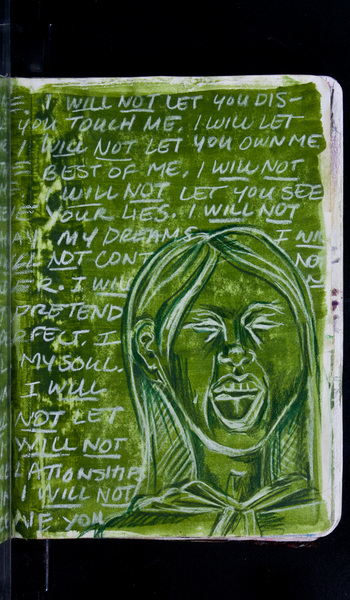 I WILL NOT LET YOU DIS-
YOU TOUCH ME. I WILL LET
I WILL NOT LET YOU OWN ME
BEST OF ME. I WILL NOT
WILL NOT LET YOU SEE
YOUR LIES. I WILL NOT
MY DREAMS I WILL
NOT CONT NO
ER. I WILL
PRETEND
RFECT. I
MY SOUL.
I WILL
NOT LET
WILL NOT
LATIONSHIP
I WILL NOT
YOU